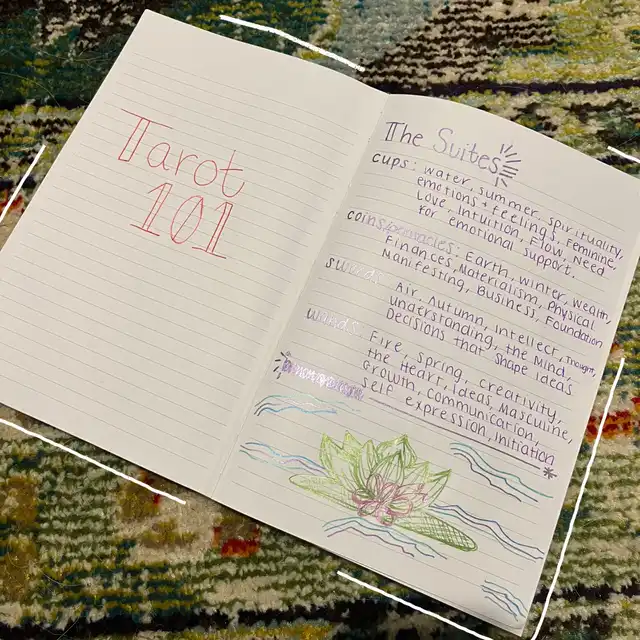 Tarot
101
The Suites
cups: water, summer, spirituality,
emotions + feelings, Feminine,
Love, intuition, Flow, Need
for emotional support,
coins/pentacles: Earth, winter, wealth,
Finances, Materialism, Physical
Manifesting, Business, Foundation
swords: Air, Autumn, intellect, Thought,
understanding, the Mind,
Decisions that shape ideas
wands: Fire, spring, creativity,
the Heart, Ideas, Masculine,
Growth, Communication,
self expression, initiation